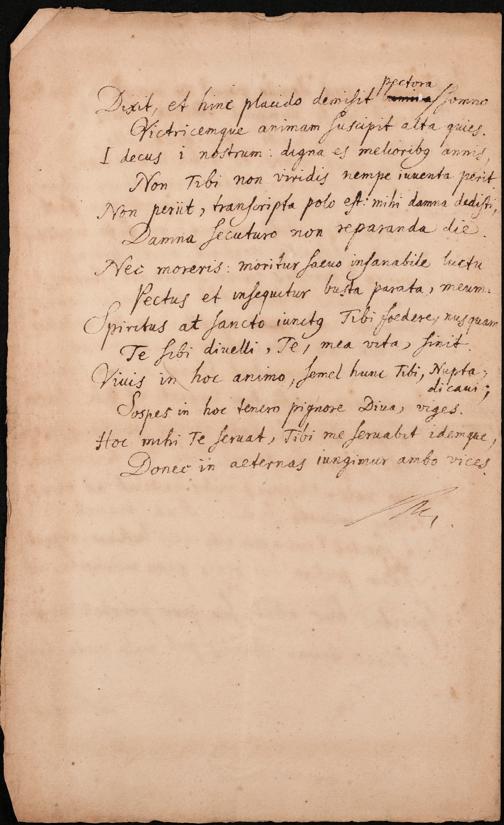 pectora
Dixit, et hinc placido demisit somno
Victricemque animam suscipit alta quies.
I decus i nostrum: digna es melioribq annis,
Non Tibi non viridis nempe iuventa perit
Non periit, transcripta polo est: mihi damna dedisti,
Damna secuturo non reparanda die.
Nec moreris: moritur saevo insanabile luctu
Pectus et insequitur busta parata, meum.
Spiritus at sancto iunctq Tibi foedere, nusquam
Te sibi diuelli, Te, mea vita, sinit.
Viuis in hoc animo, semel hunc Tibi, Nupta,
dicaui;
Sospes in hoc tenero pignore Diua, viges.
Hoc mihi Te seruat, Tibi me seruabit idemque,
Donec in aeternas iungimur ambo vices.